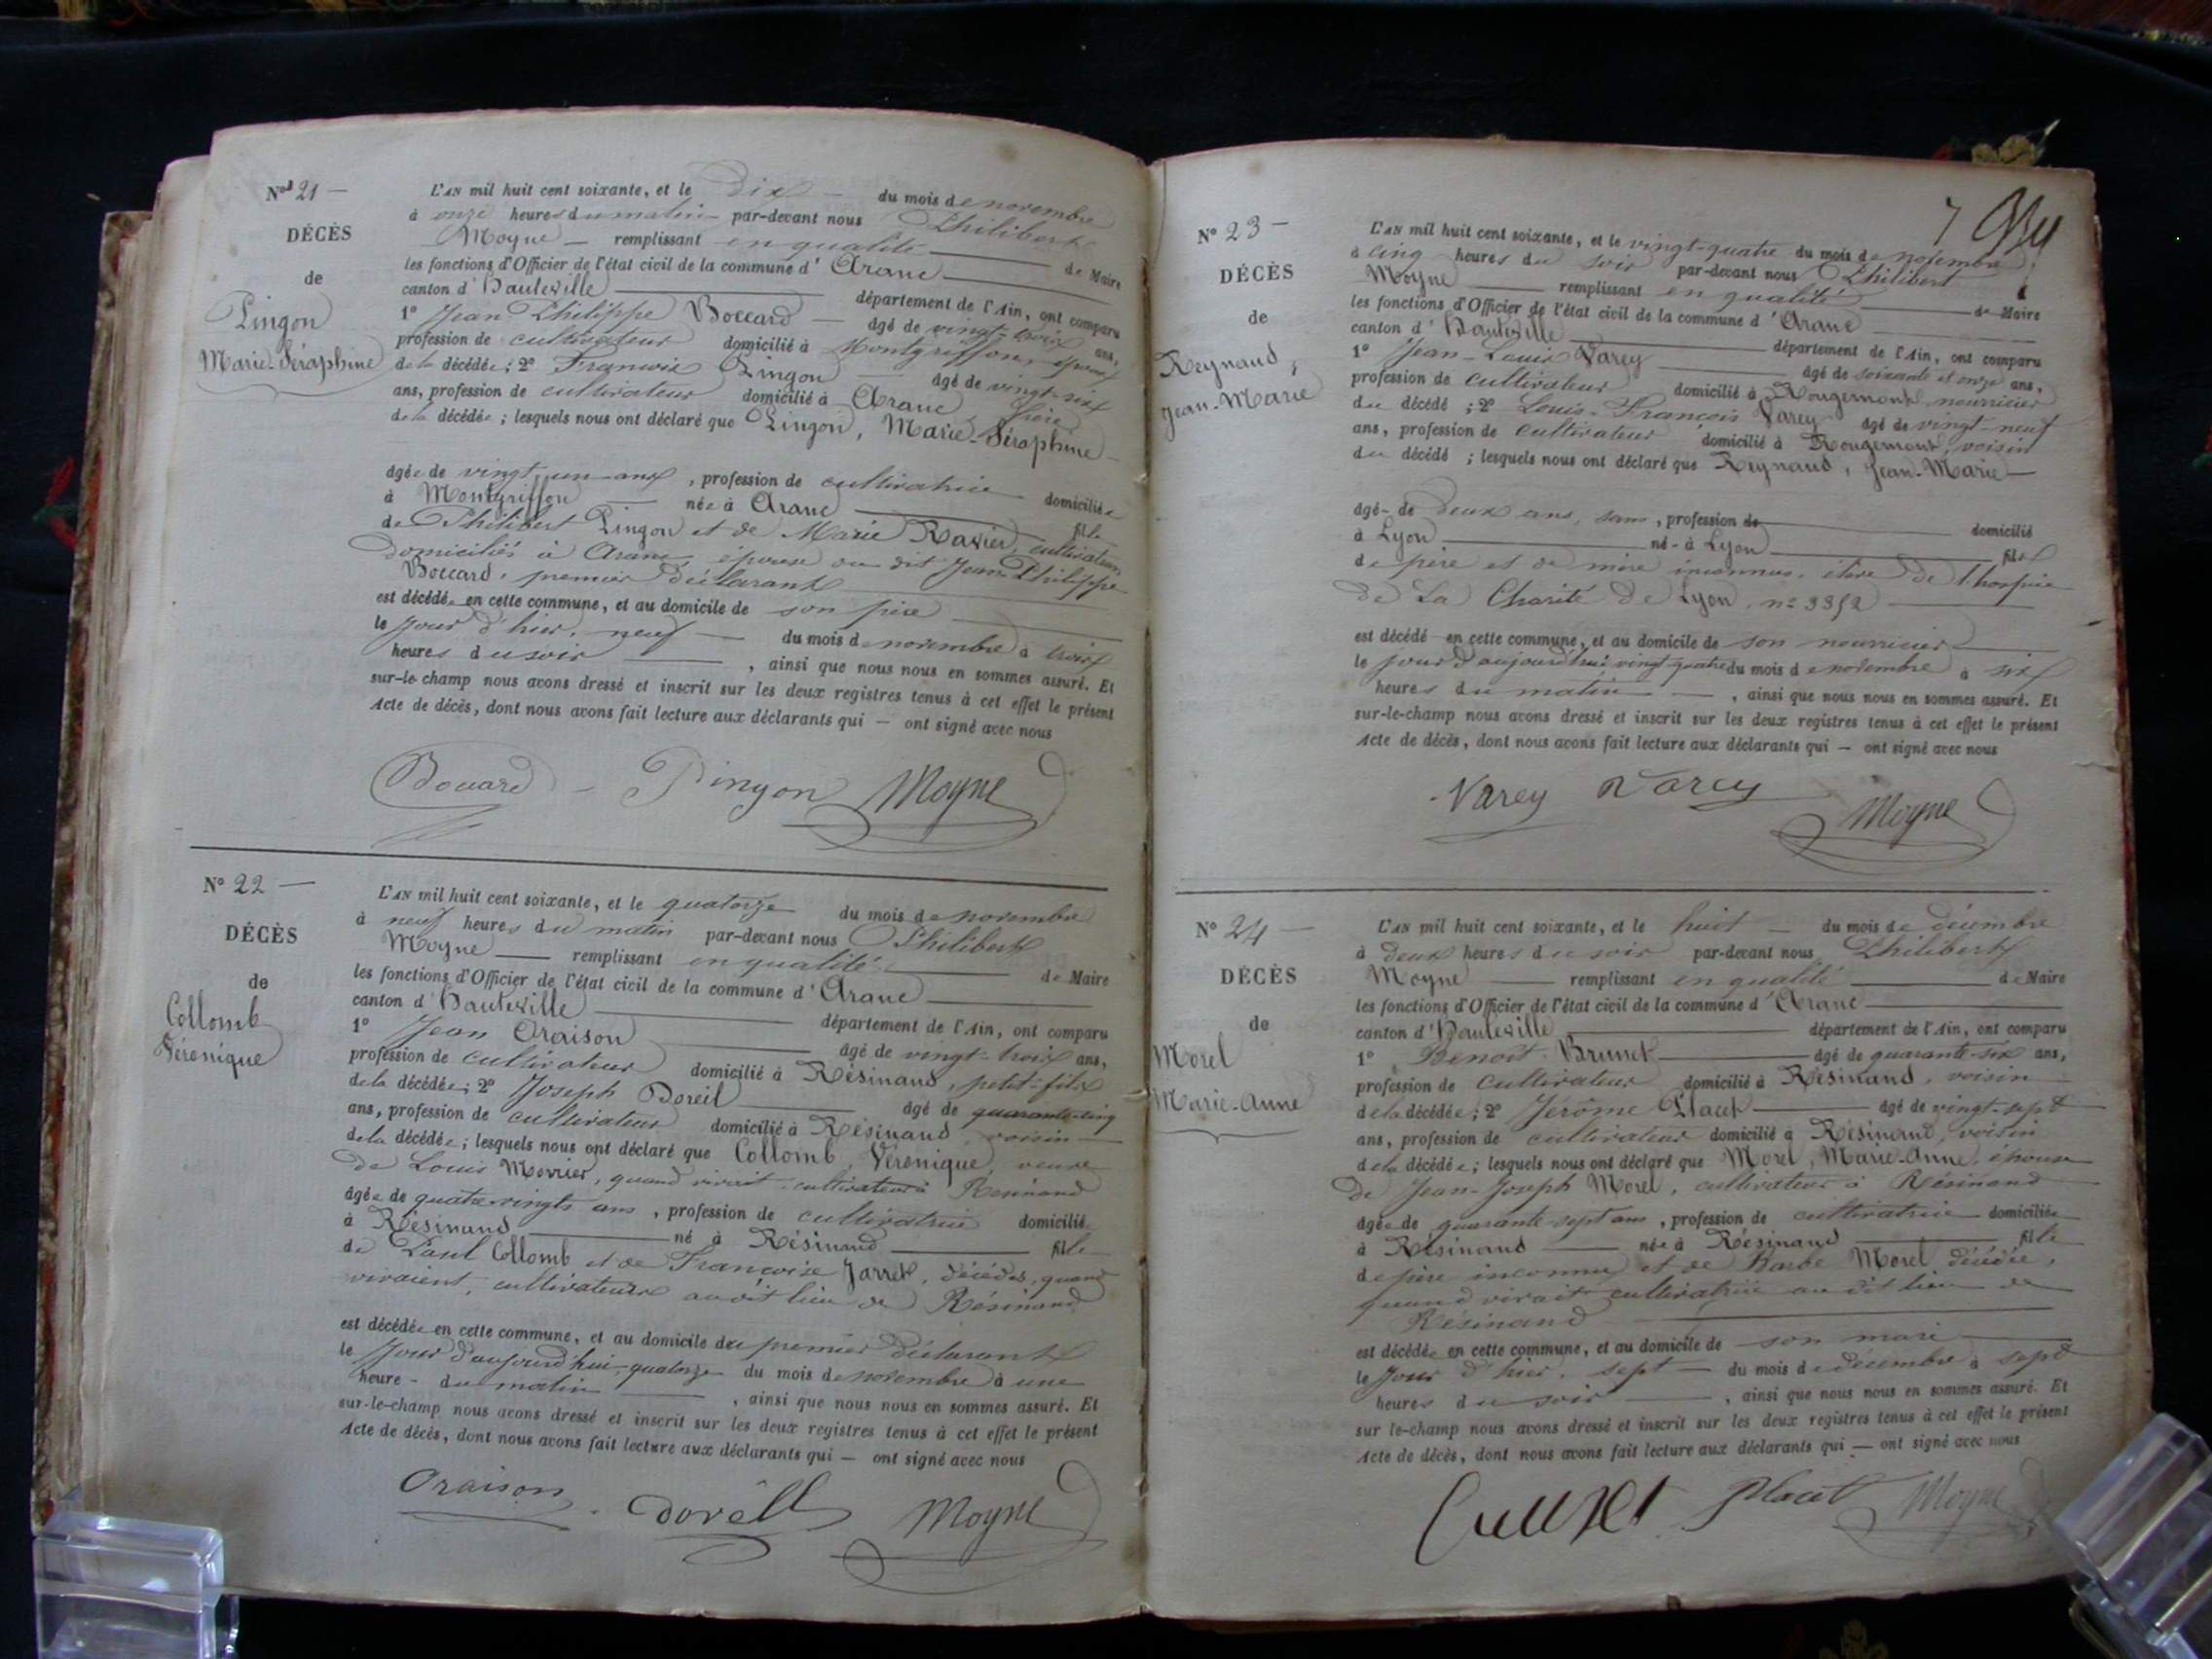 N° 21 —
DÉCÈS
de
Pingon
Marie-Séraphine
L'AN mil huit cent soixante, et le Dix — du mois de novembre
à onze heures du matin par-devant nous Philibert
Moyne — remplissant en qualité de Maire
les fonctions d'Officier de l'état civil de la commune d'Aranc
canton d'Hauteville département de l'Ain, ont comparu
1° Jean Philippe Boccard — âgé de vingt-trois ans,
profession de cultivateur domicilié à Montgriffon, époux
de la décédée; 2° François Pingon âgé de vingt-six
ans, profession de cultivateur domicilié à Aranc, frère
de la décédée; lesquels nous ont déclaré que Pingon, Marie-Séraphine
âgée de vingt-un ans, profession de cultivatrice domiciliée
à Montgriffon née à Aranc fille
de Philibert Pingon et de Marie Ravier, cultivateurs
domiciliés à Aranc, épouse du dit Jean-Philippe
Boccard, premier déclarant
est décédée en cette commune, et au domicile de son père
le jour d'hier, neuf — du mois de novembre à trois
heures du soir, ainsi que nous nous en sommes assuré. Et
sur-le-champ nous avons dressé et inscrit sur les deux registres tenus à cet effet le présent
Acte de décès, dont nous avons fait lecture aux déclarants qui — ont signé avec nous
Bocard — Pingon Moyne
N° 22 —
DÉCÈS
de
Collomb
Véronique
L'AN mil huit cent soixante, et le quatorze du mois de novembre
à neuf heures du matin par-devant nous Philibert
Moyne — remplissant en qualité de Maire
les fonctions d'Officier de l'état civil de la commune d'Aranc
canton d'Hauteville département de l'Ain, ont comparu
1° Jean Oraison âgé de vingt-trois ans,
profession de cultivateur domicilié à Résinand, petit-fils
de la décédée; 2° Joseph Doreil âgé de quarante-cinq
ans, profession de cultivateur domicilié à Résinand, voisin
de la décédée; lesquels nous ont déclaré que Collomb, Véronique, veuve
de Louis Morrier, quand vivait cultivateur à Résinand
âgée de quatre-vingts ans, profession de cultivatrice domiciliée
à Résinand né à Résinand fille
de Paul Collomb et de Françoise Jarret, décédés, quand
vivaient, cultivateurs au dit lieu de Résinand
est décédée en cette commune, et au domicile du premier déclarant
le jour d'aujourd'hui, quatorze du mois de novembre à une
heure - du matin, ainsi que nous nous en sommes assuré. Et
sur-le-champ nous avons dressé et inscrit sur les deux registres tenus à cet effet le présent
Acte de décès, dont nous avons fait lecture aux déclarants qui — ont signé avec nous
Oraison Dorell Moyne
7
N° 23 —
DÉCÈS
de
Reynaud,
Jean-Marie
L'AN mil huit cent soixante, et le vingt-quatre du mois de novembre
à cinq heures du soir par-devant nous Philibert
Moyne remplissant en qualité de Maire
les fonctions d'Officier de l'état civil de la commune d'Aranc
canton d'Hauteville département de l'Ain, ont comparu
1° Jean-Louis Varey âgé de soixante et onze ans,
profession de cultivateur domicilié à Rougemont, nourricier
du décédé; 2° Louis-François Varey âgé de vingt-neuf
ans, profession de cultivateur domicilié à Rougemont, voisin
du décédé; lesquels nous ont déclaré que Reynaud, Jean-Marie —
âgé- de deux ans, sans, profession de domicilié
à Lyon né- à Lyon fils
de père et de mère inconnus, élève de l'hospice
de La Charité de Lyon, n°
est décédé en cette commune, et au domicile de son nourricier
le jour d'aujourd'hui vingt-quatre du mois de novembre à six
heures du matin —, ainsi que nous nous en sommes assuré. Et
sur-le-champ nous avons dressé et inscrit sur les deux registres tenus à cet effet le présent
Acte de décès, dont nous avons fait lecture aux déclarants qui — ont signé avec nous
Varey Varey Moyne
N° 24 —
DÉCÈS
de
Morel
Marie-Anne
L'AN mil huit cent soixante, et le huit — du mois de décembre
à deux heures du soir par-devant nous Philibert
Moyne — remplissant en qualité de Maire
les fonctions d'Officier de l'état civil de la commune d'Aranc
canton d'Hauteville département de l'Ain, ont comparu
1° Benoît Brunet âgé de quarante-six ans,
profession de cultivateur domicilié à Résinand, voisin
de la décédée; 2° Jérôme Plaut âgé de vingt-sept
ans, profession de cultivateur domicilié à Résinand, voisin
de la décédée; lesquels nous ont déclaré que Morel, Marie-Anne, épouse
de Jean-Joseph Morel, cultivateur à Résinand
âgée de quarante-sept ans, profession de cultivatrice domiciliée
à Résinand née à Résinand fille
de père inconnu et de Barbe Morel décédée,
quand vivait cultivatrice au dit lieu de
Résinand
est décédée en cette commune, et au domicile de son mari
le jour d'hier, sept — du mois de décembre à sept
heures du soir, ainsi que nous nous en sommes assuré. Et
sur le-champ nous avons dressé et inscrit sur les deux registres tenus à cet effet le présent
Acte de décès, dont nous avons fait lecture aux déclarants qui — ont signé avec nous
Plaut Moyne